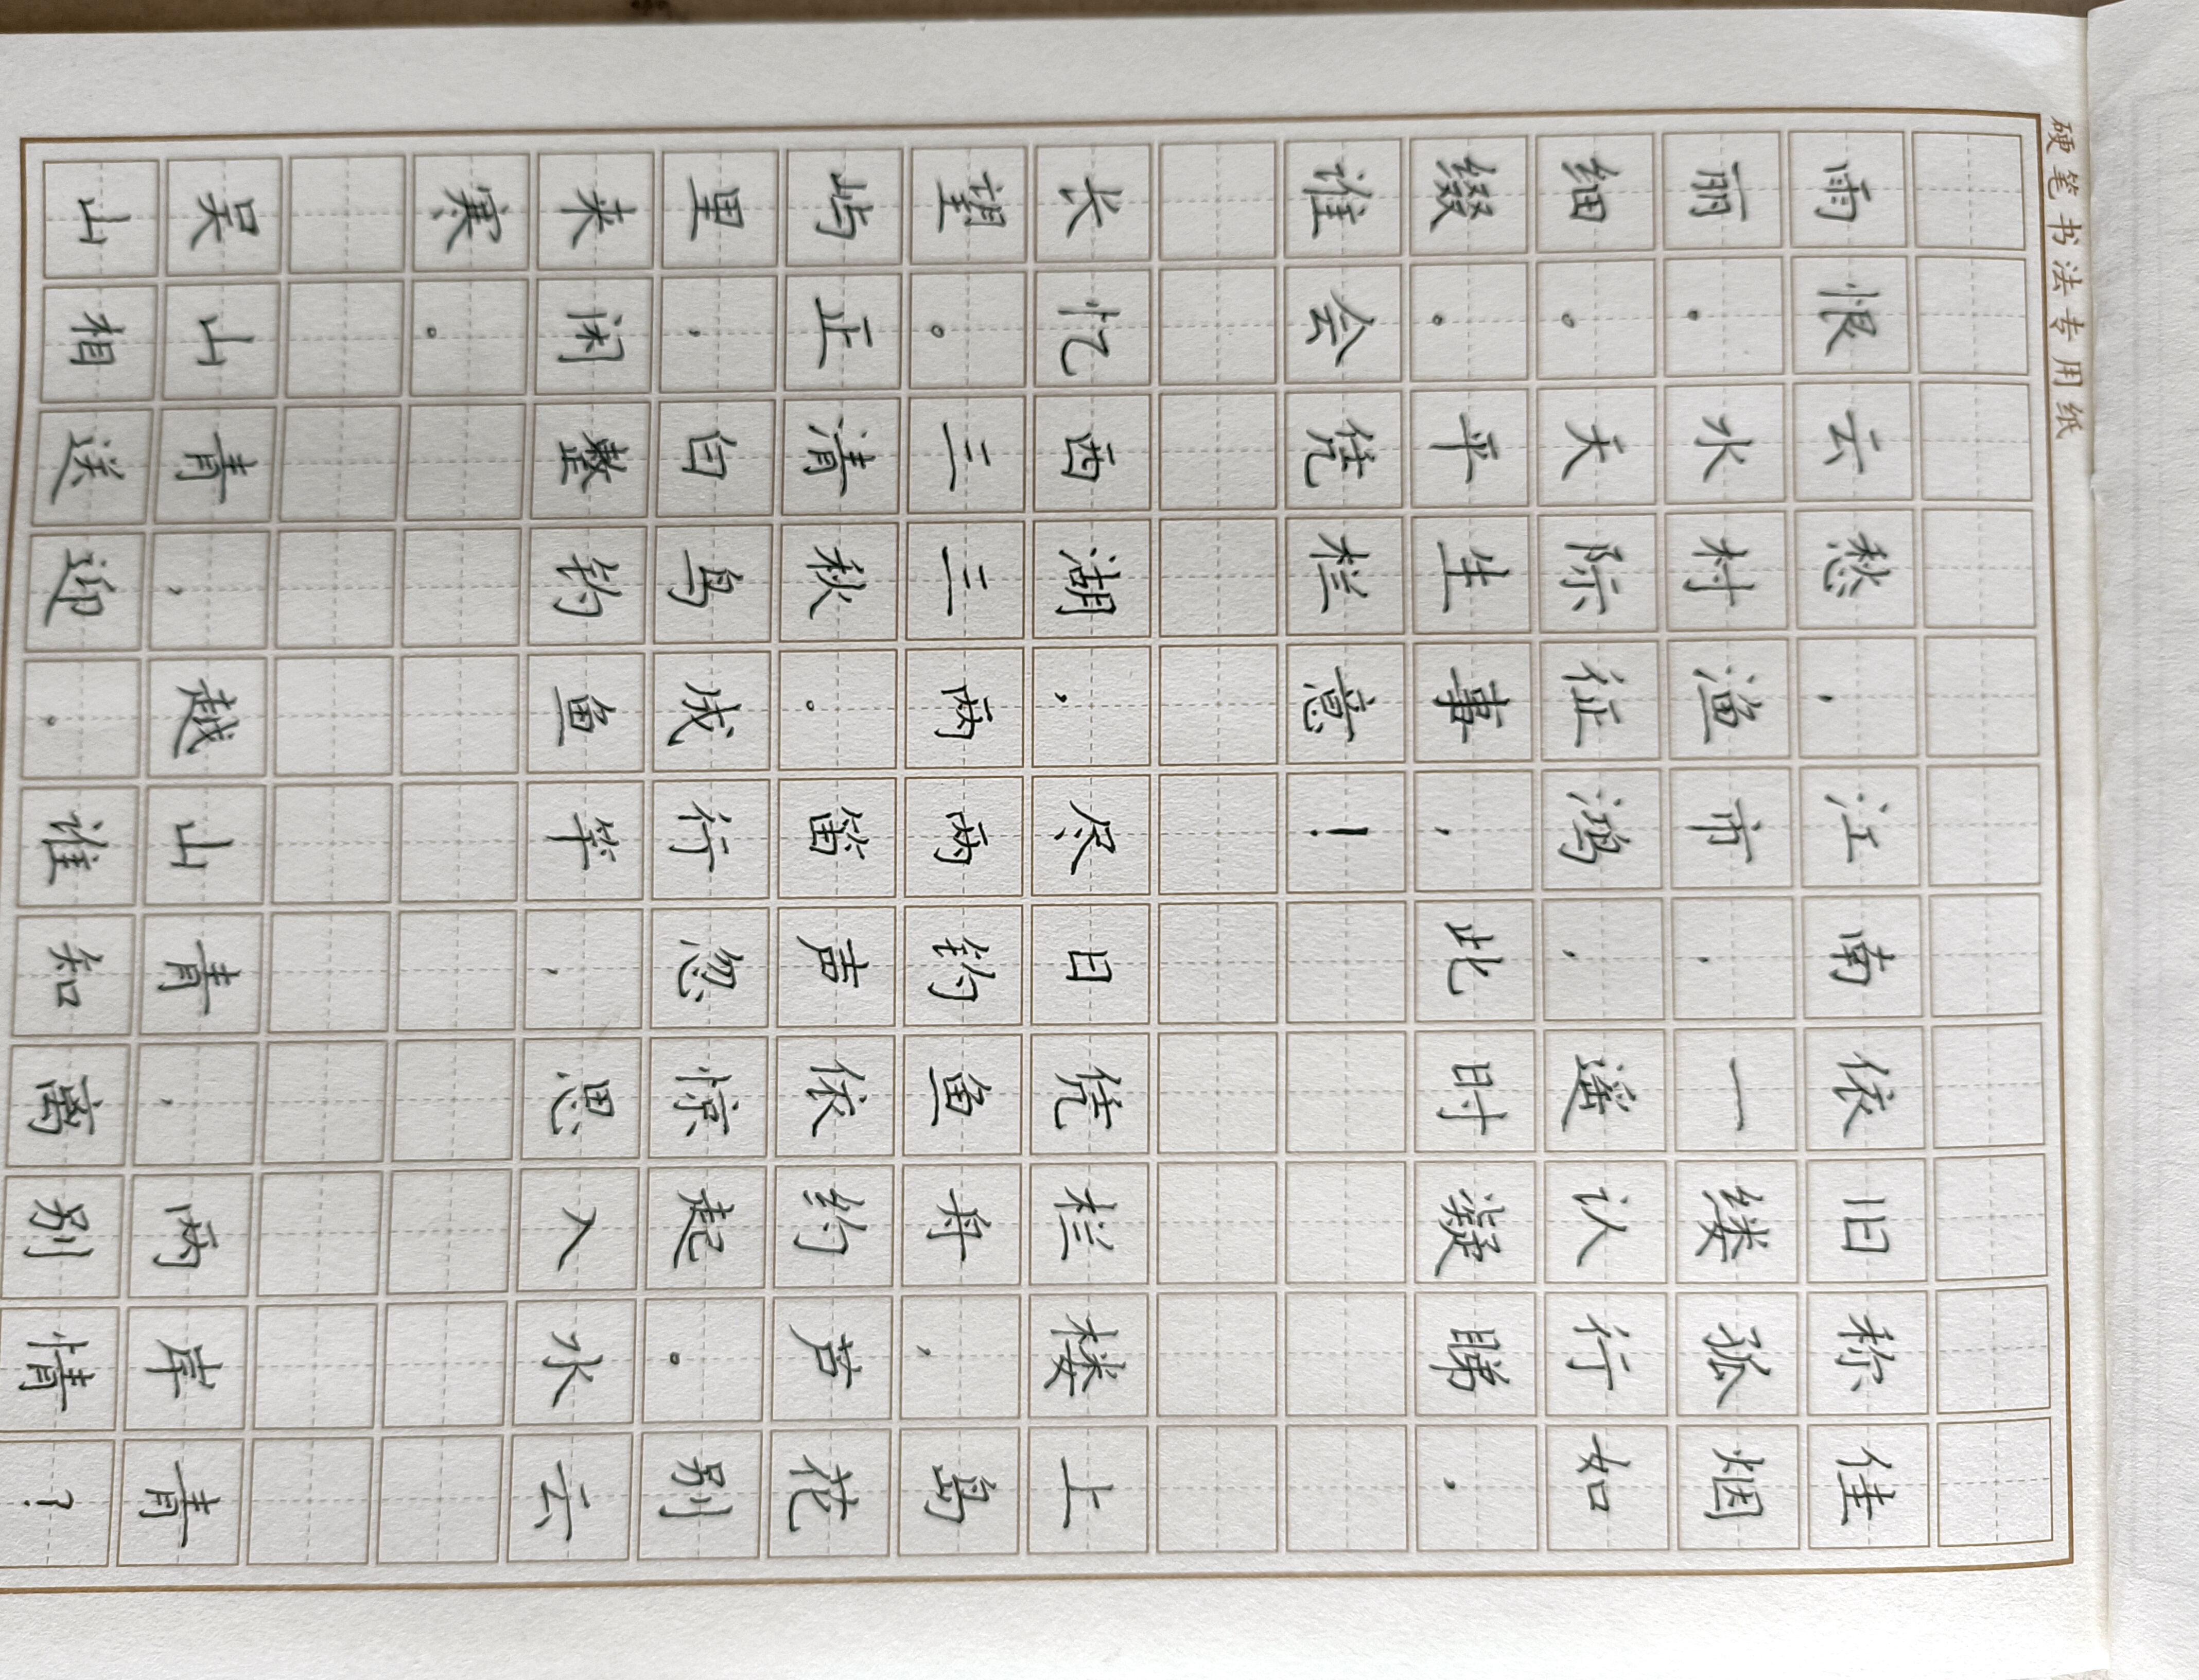 硬笔书法专用纸
雨恨云愁，江南依旧称佳
丽，水村渔市，一缕孤烟
细。天际征鸿，遥认行如
缀。平生事，此时凝睇，
谁会凭栏意！
长忆西湖，尽日凭栏楼上
望。三三两两钓鱼舟，岛
屿正清秋。笛声依约芦花
里，白鸟成行忽惊起。别
来闲整钓鱼竿，思入水云
寒。
吴山青，越山青，两岸青
山相送迎。谁知离别情？